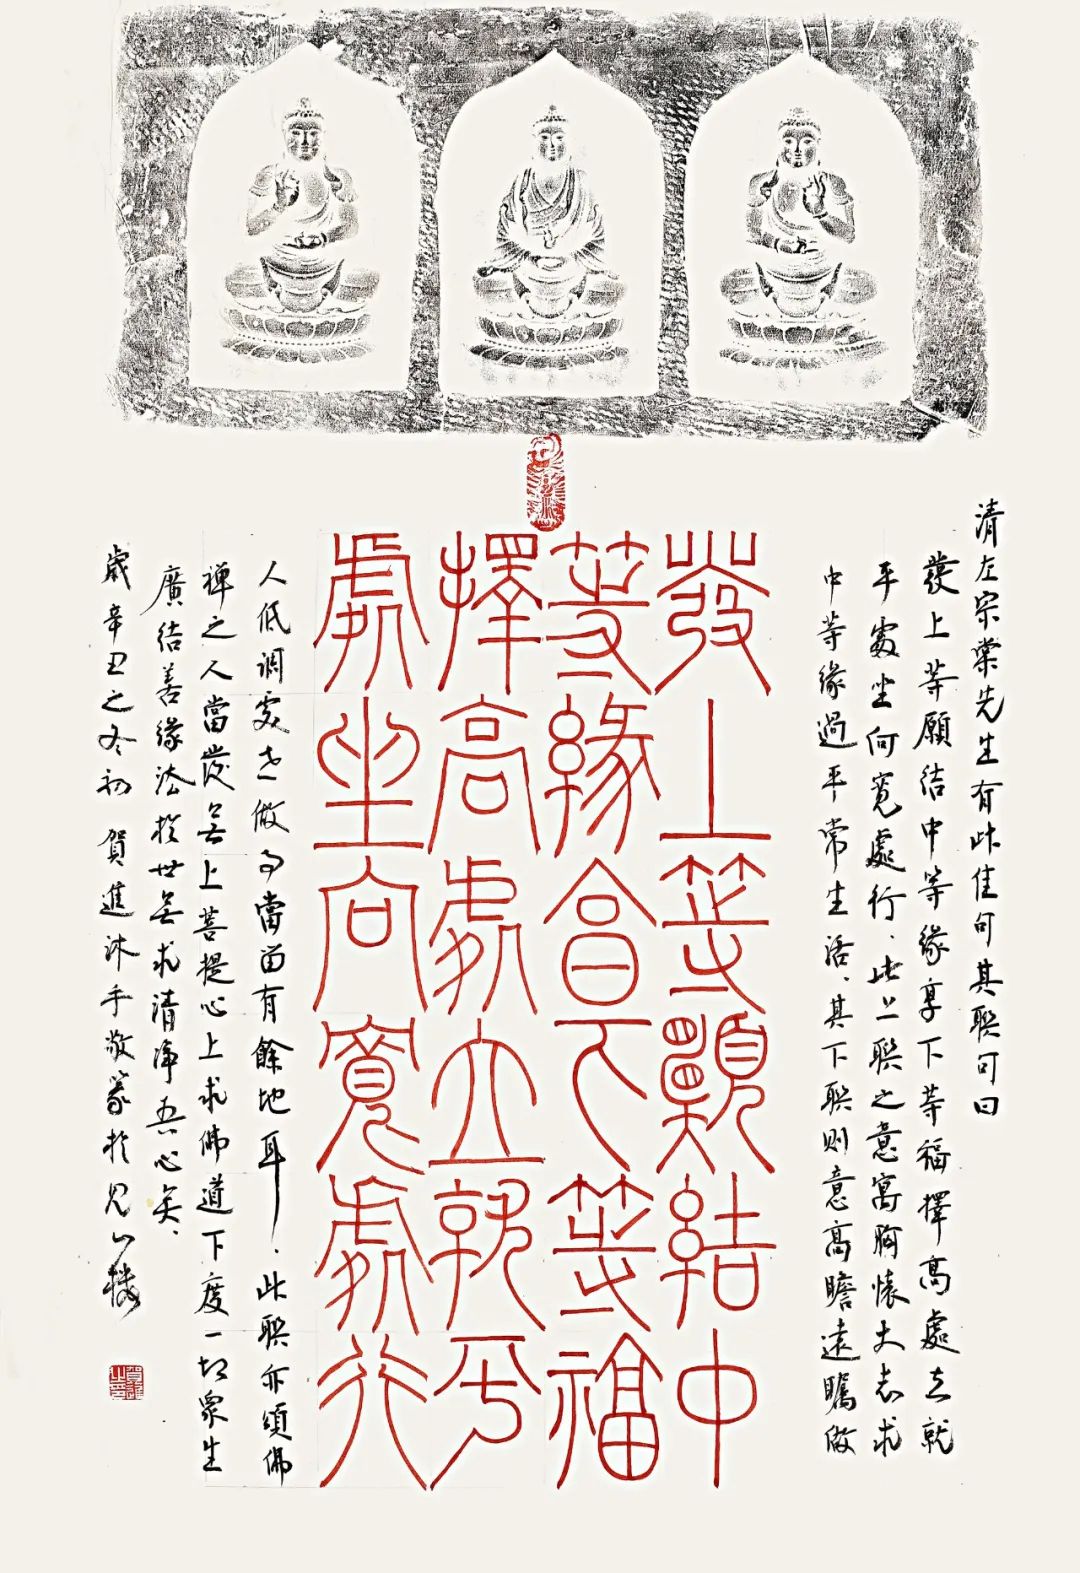 清左宗棠先生有此佳句其聯可曰
發上等願結中等緣享下等福擇高處立就
平處坐向寬處行、此上聯之意寓胸懷大志求
中等緣過平常生活、其下聯則意高瞻遠矚做
發上等願結中
等緣享下等福
擇高處立就平
處坐向寬處行
人低調處世做事當留有餘地耳、此聯亦頌佛
禪之人當發無上菩提心上求佛道下度一切眾生
廣結善緣法於世無求清淨吾心矣、
歲辛丑之冬初賀進沐手敬篆於見山樓